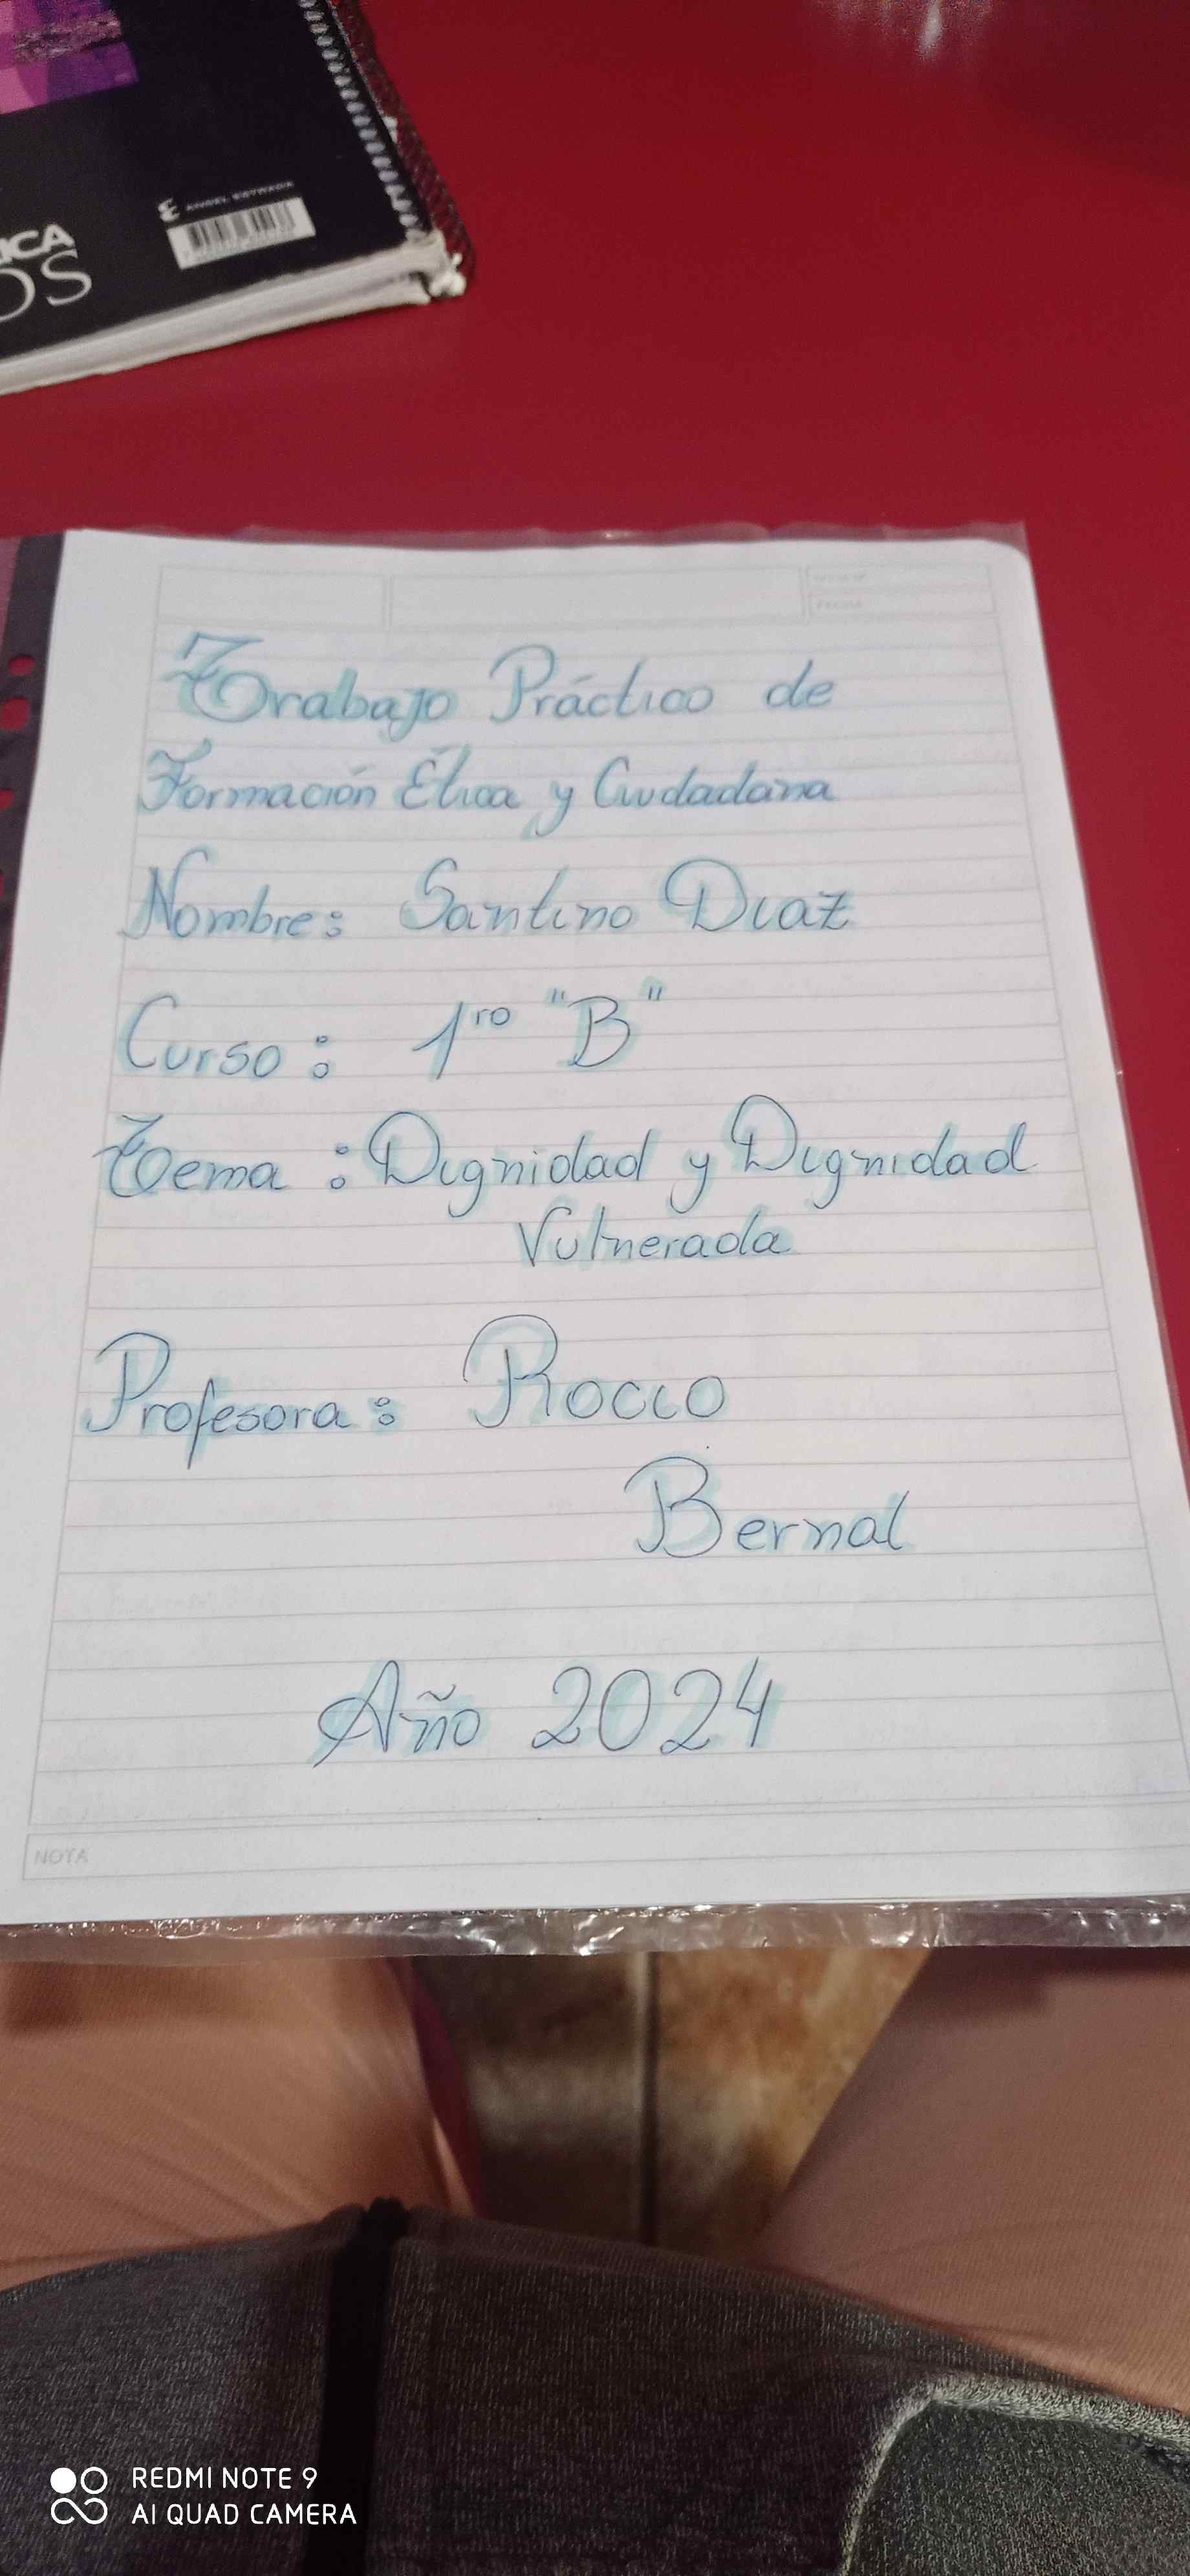 ANGEL ESTRADA
ICA
OS
Trabajo Práctico de
Formación Ética y Ciudadana
Nombre: Santino Diaz
Curso: 1ro "B"
Tema: Dignidad y Dignidad
Vulnerada
Profesora: Rocio
Bernal
Año 2024
NOTA
REDMI NOTE 9
AI QUAD CAMERA